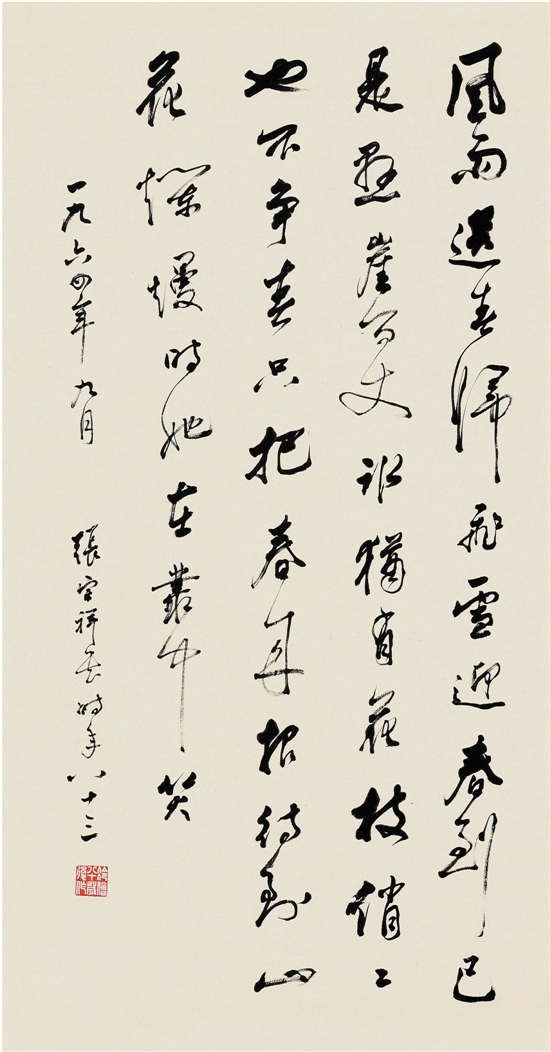 風雨送春歸飛雪迎春到已
是悬崖百丈冰猶有花枝俏〻
也不争春只把春来报待到山
花爛熳時她在叢中笑
一九六四年九月 張宗祥書時年八十三